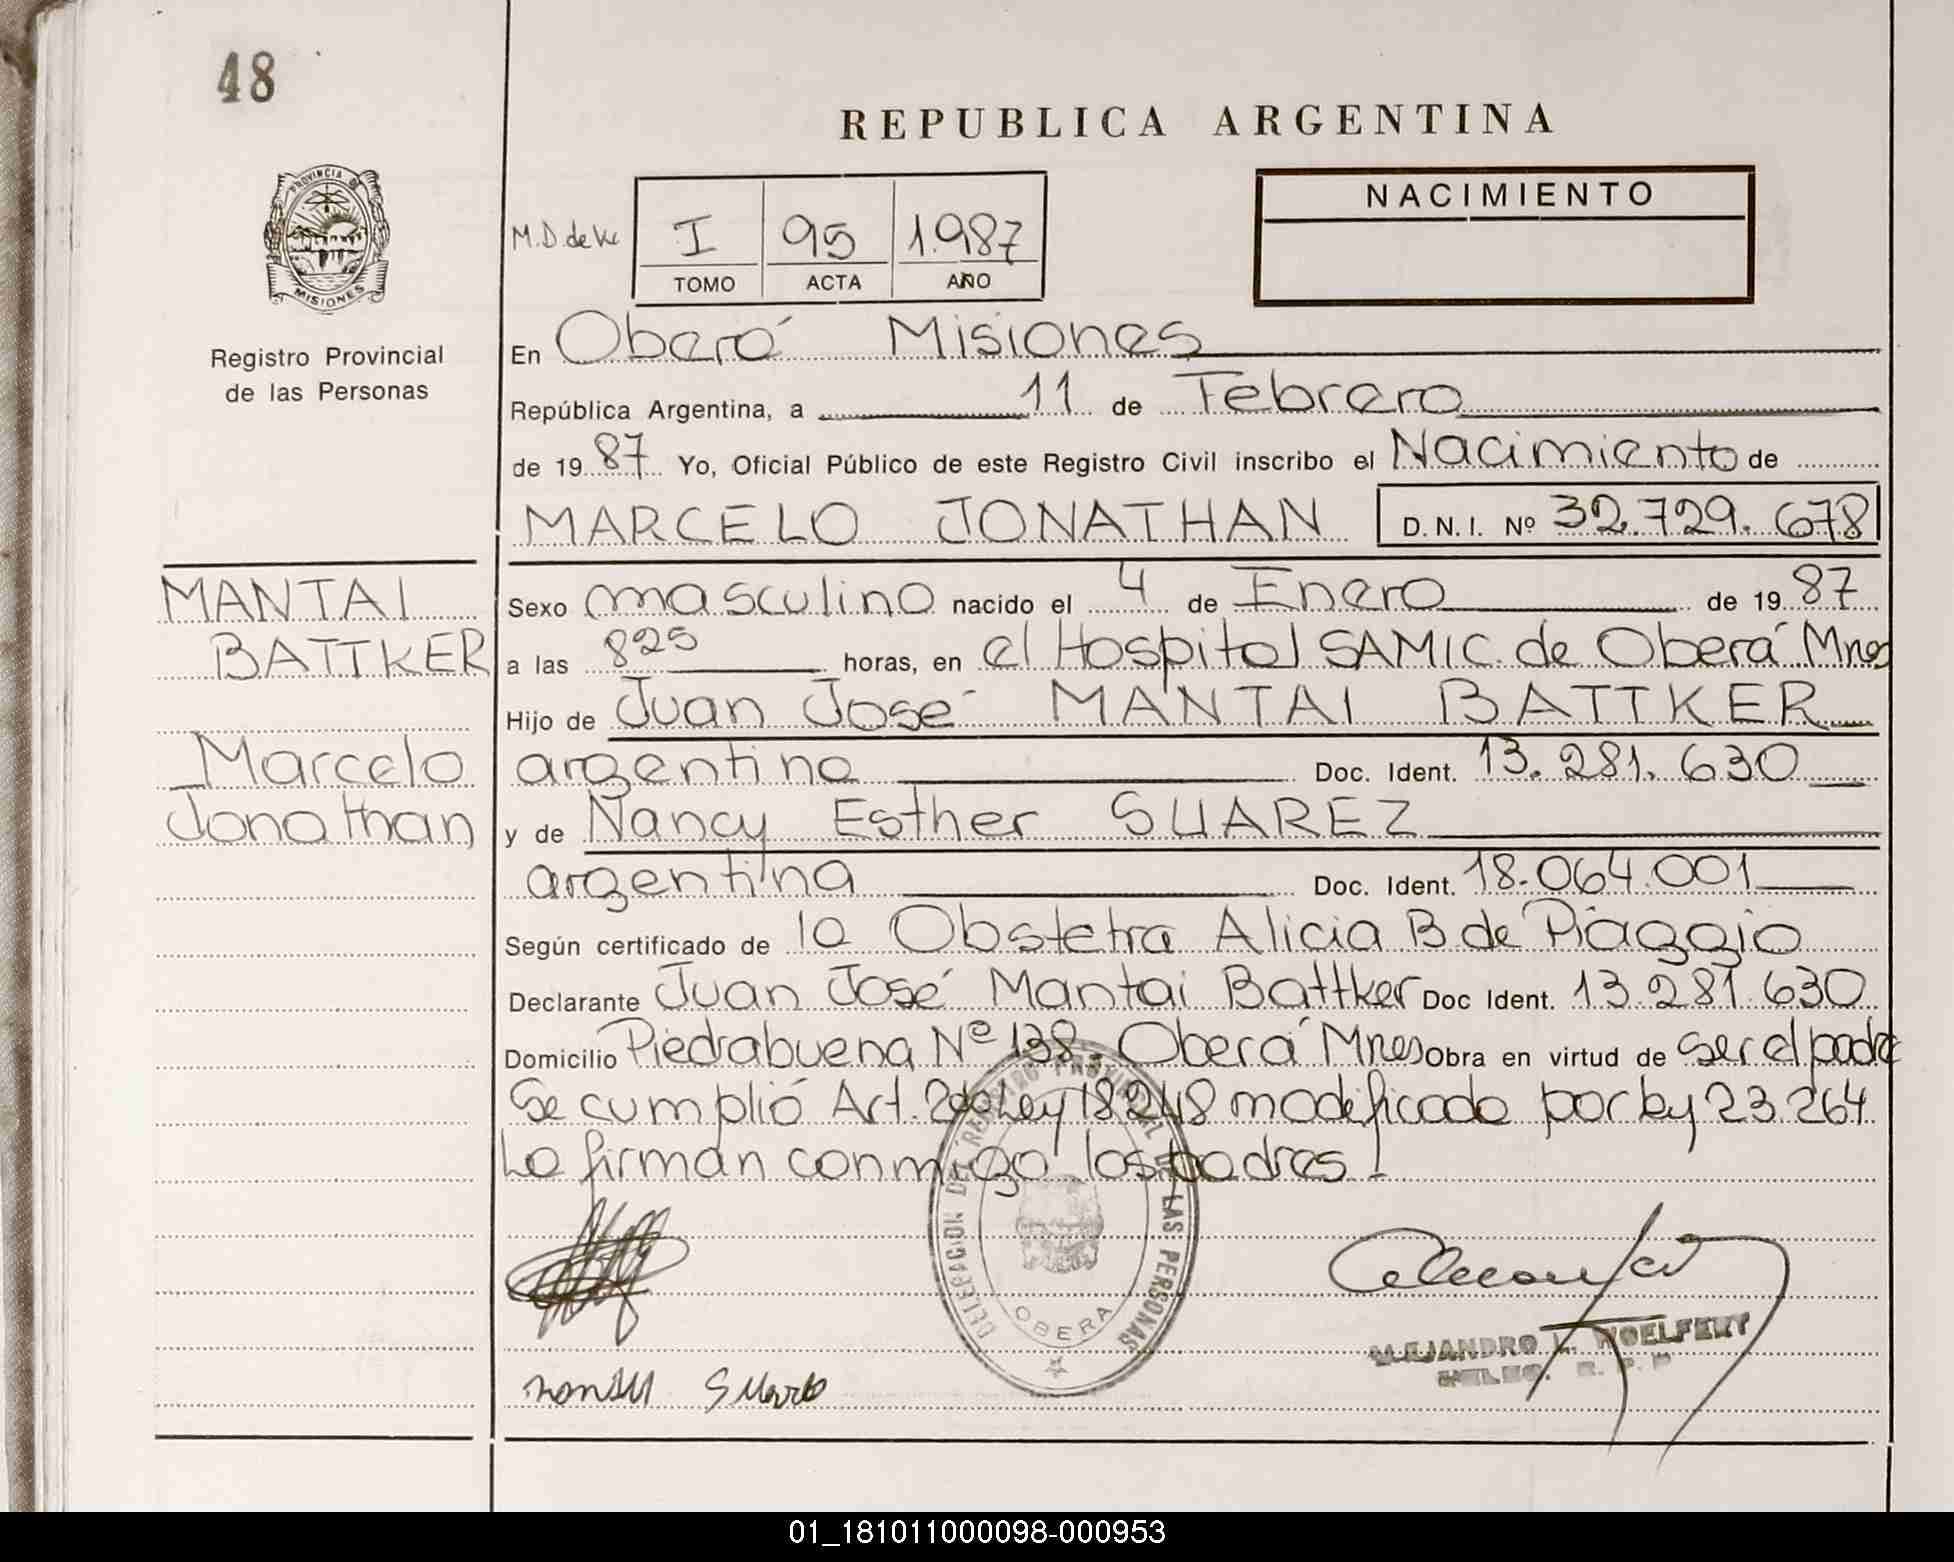 48
REPUBLICA ARGENTINA
PROVINCIA DE
MISIONES
Registro Provincial
de las Personas
M.D. de
I 95 1.987
TOMO ACTA AÑO
NACIMIENTO
En Oberá Misiones
República Argentina, a 11 de Febrero
de 19 87 Yo, Oficial Público de este Registro Civil inscribo el Nacimiento de
MARCELO JONATHAN D.N.I. Nº 32.729.678
MANTAI
BATTKER
Marcelo
Jonathan
Sexo masculino nacido el 4 de Enero de 19 87
a las 825 horas, en el Hospital SAMIC. de Oberá Mnes
Hijo de Juan José MANTAI BATTKER
argentino Doc. Ident. 13.281.630
y de Nancy Esther SUAREZ
argentina Doc. Ident. 18.064.001
Según certificado de la Obstetra Alicia B de Piaggio
Declarante Juan José Mantai Battker Doc Ident. 13.281.630
Domicilio Piedrabuena Nº 138 Oberá Mnes Obra en virtud de ser el padre
Se cumplió Art. 2do Ley 18248 modificado por ley 23.264.
Lo firman conmigo los padres!
DELEGACION DEL REGISTRO PROVINCIAL DE LAS PERSONAS
OBERA
ALEJANDRO L. WOELFERT
DELEG. R. P. P
01_181011000098-000953